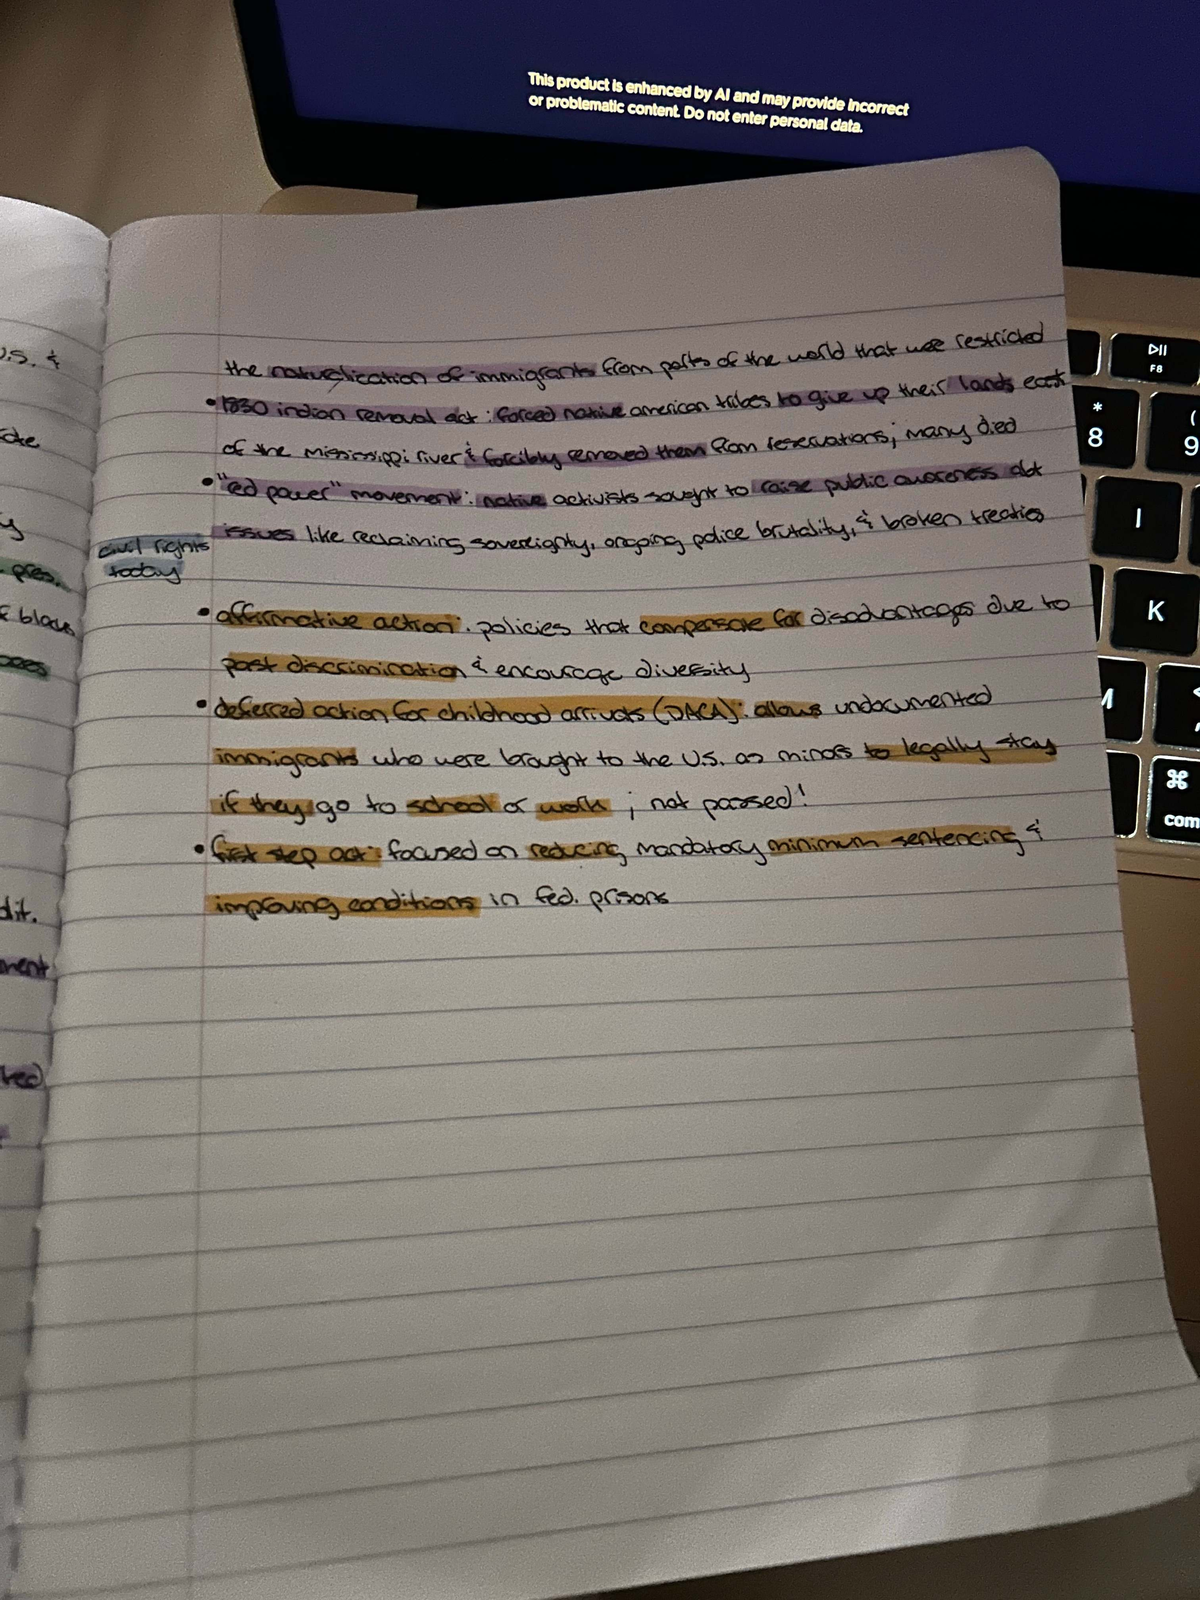 This product is enhanced by AI and may provide incorrect
or problematic content. Do not enter personal data.
the naturalization of immigrants from parts of the world that were restricted
• 1830 indian removal act: forced native american tribes to give up their lands east
of the mississippi river & forcibly removed them from reservations; many died
• "red power" movement: native activists sought to raise public awareness abt
issues like reclaiming sovereignty, ongoing police brutality, & broken treaties
civil rights
today
• affirmative action: policies that compensate for disadvantages due to
past discrimination & encourage diversity
• deferred action for childhood arrivals (DACA): allows undocumented
immigrants who were brought to the U.S. as minors to legally stay
if they go to school or work ; not passed!
• first step act: focused on reducing mandatory minimum sentencing &
improving conditions in fed. prisons
U.S. &
pres.
blacks
dit.
ment
F8
*
8
(
9
I
K
M
⌘
com